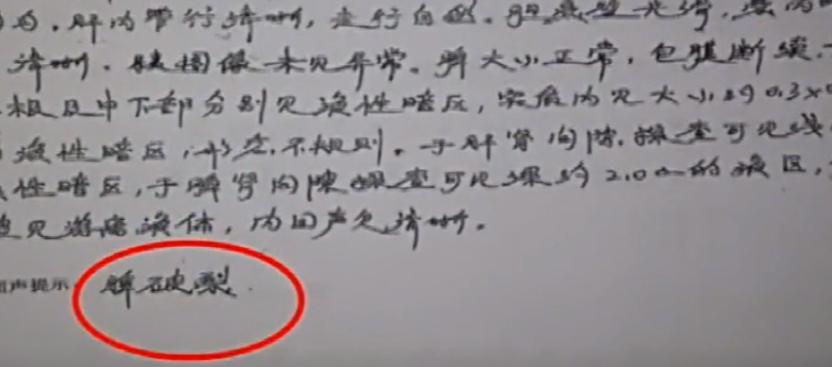 匀，肝内管行清晰，走行自然。胆囊壁光滑，囊内
清晰。胰图像未见异常。脾大小正常，包膜断续，
极且中下部分别见液性暗区，实质内见大小约0.3x
液性暗区，形态不规则。于肝肾间隙探查可见线
性暗区，于脾肾间隙探查可见深约2.0cm的液区，
见游离液体，内回声欠清晰。
声提示 脾破裂